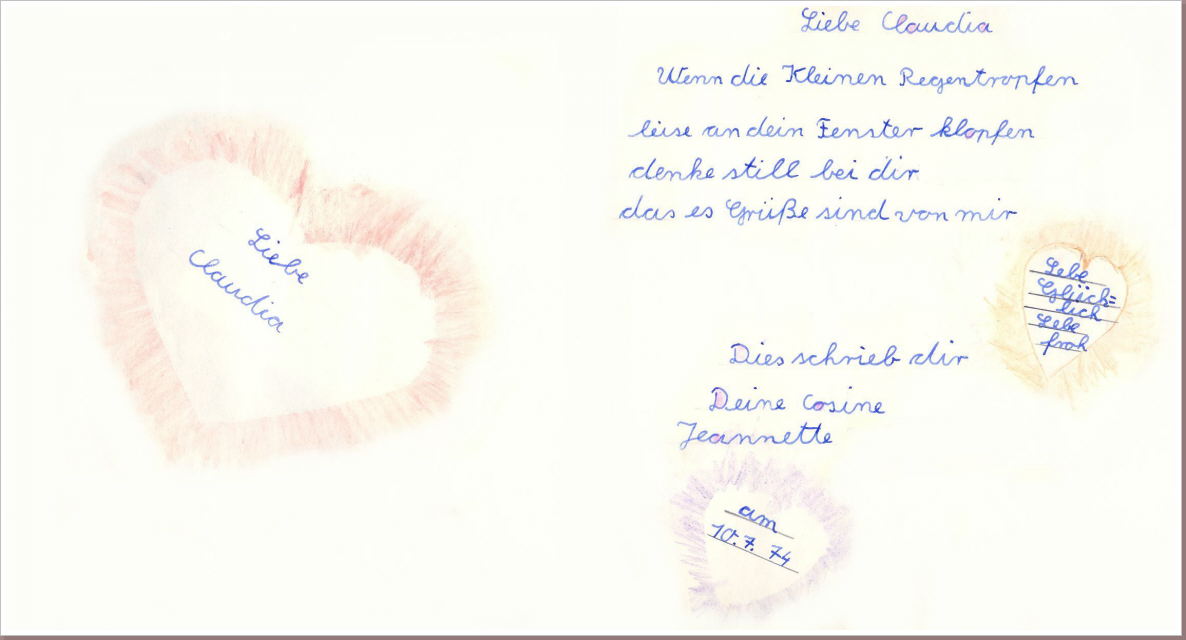 Liebe
Claudia
Liebe Claudia
Wenn die Kleinen Regentropfen
leise an dein Fenster klopfen
denke still bei dir
das es Grüße sind von mir
Lebe
Glück=
lich
Lebe
froh
Dies schrieb dir
Deine Cosine
Jeannette
am
10. 7. 74